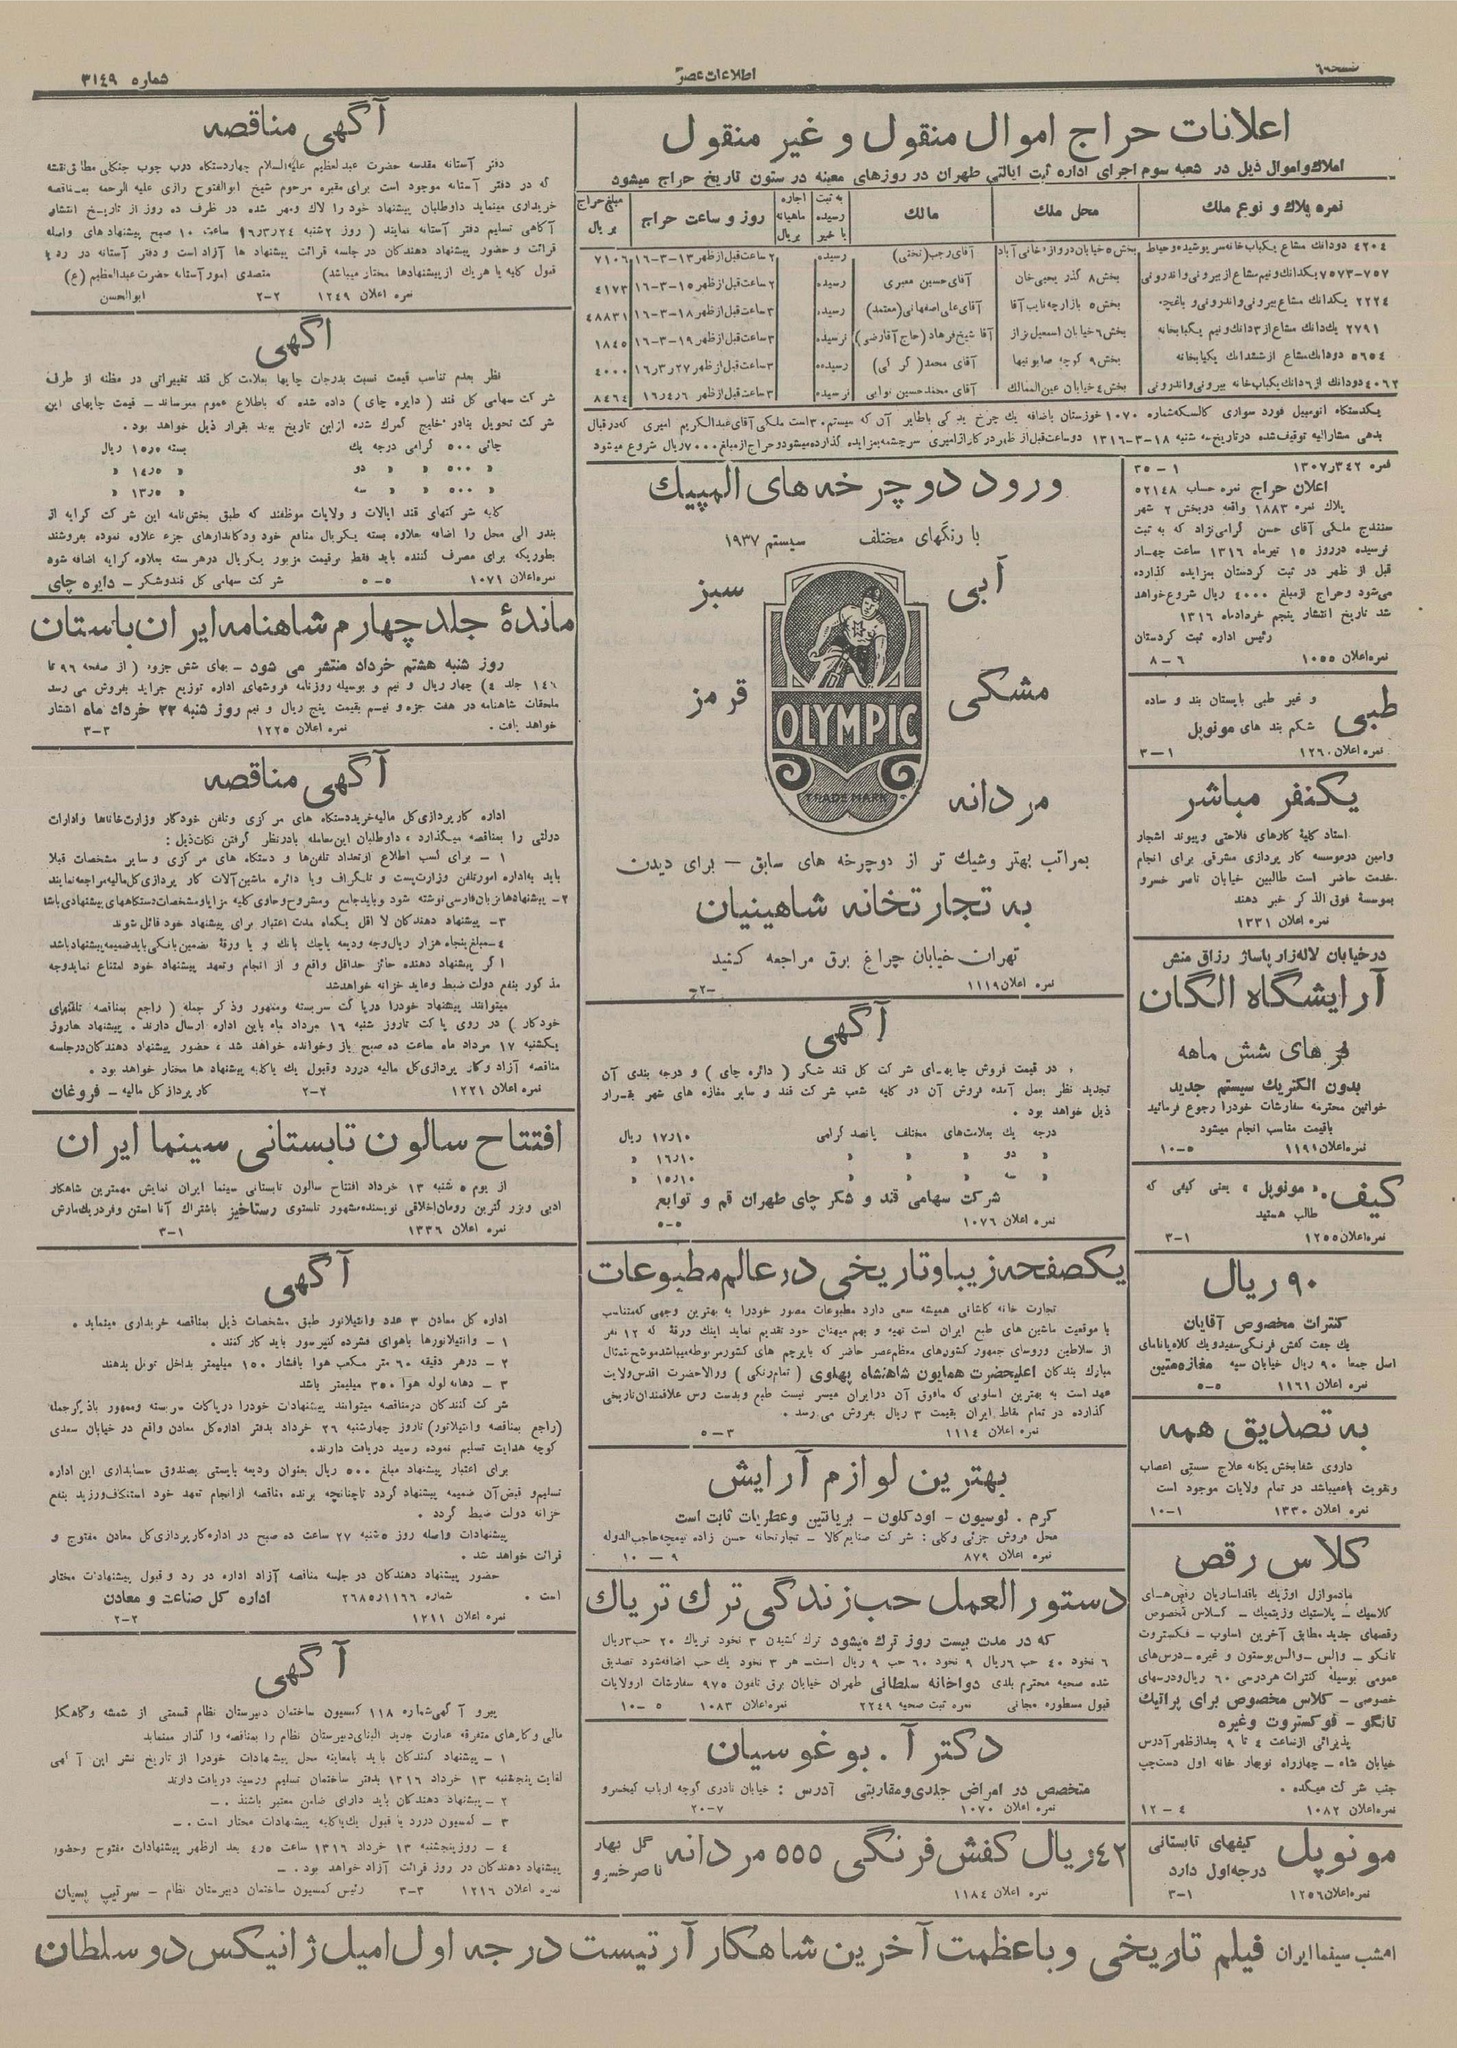 صفحه ٦
اطلاعات عصر
شماره ٣١٤٩
اعلانات حراج اموال منقول و غیر منقول
املاک و اموال ذیل در شعبه سوم اجرای اداره ثبت ایالتی طهران در روزهای معینه در ستون تاریخ حراج میشود
نمره پلاک و نوع ملک | محل ملک | مالک | به ثبت رسیده یا خیر | اجاره ماهیانه بریال | روز و ساعت حراج | مبلغ حراج بریال
٤٢٠٤ دودانک مشاع یکباب خانه سرپوشیده وحیاط | بخش ٥ خیابان دروازه خانی آباد | آقای رجب (نختی) | رسیده | ٢ ساعت قبل از ظهر ١٣-٣-١٦ | ٧١٠٦
٧٥٧-٧٥٧٣ یکدانک ونیم مشاع از بیرونی و اندرونی | بخش ٨ گذر یحیی خان | آقای حسین معیری | رسیده | ٢ ساعت قبل از ظهر ١٥-٣-١٦ | ٤١٧٣
٢٢٢٤ یکدانک مشاع بیرونی واندرونی و باغچه | بخش ٥ بازارچه نایب آقا | آقای علی اصفهانی (معتمد) | رسیده | ٣ ساعت قبل از ظهر ١٨-٣-١٦ | ٤٨٨٣١
٢٧٩١ یک دانک مشاع از ٣ دانک و نیم یکبابخانه | بخش ٦ خیابان اسمعیل بزاز | آقا شیخ فرهاد (حاج آقارضی) | نرسیده | ٣ ساعت قبل از ظهر ١٩-٣-١٦ | ١٨٤٥
٥٦٥٤ دودانک مشاع از ششدانک یکبابخانه | بخش ٩ کوچه صابونیها | آقای محمد (کرلی) | رسیده | ٣ ساعت قبل از ظهر ٢٧ر٣ر١٦ | ٤٠٠٠
٤٠٦٢ دودانک از ٦ دانک یکباب خانه بیرونی واندرونی | بخش ٤ خیابان عین الممالک | آقای محمدحسین نوابی | نرسیده | ٣ ساعت قبل از ظهر ٦ر٤ر١٦ | ٨٤٦٤
یکدستگاه اتومبیل فورد سواری کالسکه شماره ١٠٧٠ خوزستان باضافه یک چرخ یدکی باطایر آن که سیستم ٣٠ است ملکی آقای عبدالکریم امیری که در قبال
بدهی مشارالیه توقیف شده در تاریخ سه شنبه ١٨-٣-١٣١٦ دو ساعت قبل از ظهر در کاراژ امیری سرچشمه بمزایده گذارده میشود و حراج از مبلغ ٧٠٠٠ ریال شروع میشود
نمره ١٣٠٧٫٣٤٢ ١-٣٥
اعلان حراج نمره حساب ٥٢١٤٨
پلاک نمره ١٨٨٣ واقعه در بخش ٢ شهر
سنندج ملکی آقای حسن گرامی نژاد که به ثبت
نرسیده در روز ١٥ تیر ماه ١٣١٦ ساعت چهار
قبل از ظهر در ثبت کردستان بمزایده گذارده
می شود و حراج از مبلغ ٤٠٠٠ ریال شروع خواهد
شد تاریخ انتشار پنجم خرداد ماه ١٣١٦
رئیس اداره ثبت کردستان
نمره اعلان ١٠٥٥ ٦-٨
طبی و غیر طبی بایستان بند و ساده
شکم بند های مونوپل
نمره اعلان ١٢٦٠ ١-٣
یکنفر مباشر
استاد کلیهٔ کارهای فلاحتی و پیوند اشجار
وامین در موسسه کار پردازی مشرقی برای انجام
خدمت حاضر است طالبین خیابان ناصر خسرو
بموسسهٔ فوق الذکر خبر دهند
نمره اعلان ١٣٣١
در خیابان لاله زار پاساژ رزاق منش
آرایشگاه الگان
فرهای شش ماهه
بدون الکتریک سیستم جدید
خوانین محترمه سفارشات خودرا رجوع فرمائید
باقیمت مناسب انجام میشود
نمره اعلان ١١٩١ ٥-١٠
کیف «مونوپل» یعنی کیفی که
طالب هستید
نمره اعلان ١٢٥٥ ١-٣
٩٠ ریال
کنترات مخصوص آقایان
یک جفت کفش فرنگی سفید و یک کلاه پانامای
اصل جمعاً ٩٠ ریال خیابان سپه مغازه متین
نمره اعلان ١١٦١ ٥-٥
به تصدیق همه
داروی شفابخش یگانه علاج سستی اعصاب
وتقویت باه میباشد در تمام ولایات موجود است
نمره اعلان ١٣٣٠ ١-١٠
کلاس رقص
مادموازل اوژیک باقداساریان رقص های
کلاسیک – پلاستیک وریتمیک – کلاس مخصوص
رقصهای جدید مطابق آخرین اسلوب – فکستروت
تانگو – والس – والس بوستون و غیره – درس های
عمومی بوسیله کنترات هر درسی ٦٠ ریال و درسهای
خصوصی – کلاس مخصوص برای پراتیک
تانگو – فوکستروت وغیره
پذیرائی از ساعت ٤ تا ٩ بعد از ظهر آدرس
خیابان شاه – چهارراه نوبهار خانه اول دست چپ
جنب شرکت میکده.
نمره اعلان ١٠٨٢ ٤-١٢
مونوپل کیفهای تابستانی
درجه اول دارد
نمره اعلان ١٢٥٦ ١-٣
ورود دوچرخه های المپیک
با رنگهای مختلف سیستم ١٩٣٧
آبی سبز
مشکی قرمز
مردانه
OLYMPIC
TRADE MARK
بمراتب بهتر وشیک تر از دوچرخه های سابق – برای دیدن
به تجارتخانه شاهینیان
تهران خیابان چراغ برق مراجعه کنید
نمره اعلان ١١١٩
آگهی
در قیمت فروش چایهای شرکت کل قند شکر (دائره چای) و درجه بندی آن
تجدید نظر بعمل آمده فروش آن در کلیه شعب شرکت قند و سایر مغازه های شهر بقرار
ذیل خواهد بود.
درجه یک بعلامت های مختلف پانصد گرامی ١٧٫١٠ ریال
» دو » » » ١٦٫١٠ »
» سه » » » ١٥٫١٠ »
شرکت سهامی قند و شکر چای طهران قم و توابع
نمره اعلان ١٠٧٦ ٥-٥
یکصفحه زیبا و تاریخی در عالم مطبوعات
تجارت خانه کاشانی همیشه سعی دارد مطبوعات مصور خودرا به بهترین وجهی که متناسب
با موقعیت ماشین های طبع ایران است تهیه و بهم میهنان خود تقدیم نماید اینک ورقهٔ که ١٢ نفر
از سلاطین و روسای جمهور کشورهای معظم عصر حاضر که با پرچم های کشور مربوطه میباشد موشح بتمثال
مبارک بندگان اعلیحضرت همایون شاهنشاه پهلوی (تمام رنگی) و والاحضرت اقدس ولایت
عهد است به بهترین اسلوبی که مافوق آن در ایران میسر نیست طبع و بدست رس علاقمندان تاریخی
گذارده در تمام نقاط ایران بقیمت ٣ ریال بفروش می رسد.
نمره اعلان ١١١٤ ٣-٥
بهترین لوازم آرایش
کرم. لوسیون – اودکلون – بریانتین وعطریات ثابت است
محل فروش جزئی و کلی: شرکت صنایع کالا – تجارتخانه حسن زاده تیمچه حاجب الدوله
نمره اعلان ٨٧٩ ٩-١٠
دستورالعمل حب زندگی ترک تریاک
که در مدت بیست روز ترک میشود ترک کشیدن ٣ نخود تریاک ٢٠ حب ٣ ریال
٦ نخود ٤٠ حب ٦ ریال ٩ نخود ٦٠ حب ٩ ریال است – هر ٣ نخود یک حب اضافه شود تصدیق
شده صحیه محترم بلدی دواخانه سلطانی طهران خیابان برق تلفون ٩٧٥ سفارشات از ولایات
قبول مسطوره مجانی نمره ثبت صحیه ٢٢٤٩ نمره اعلان ١٠٨٣ ٥-١٠
دکتر آ. بوغوسیان
متخصص در امراض جلدی و مقاربتی آدرس: خیابان نادری کوچه ارباب کیخسرو
نمره اعلان ١٠٧٠ ٧-٢٠
٤٢ ریال کفش فرنگی ٥٥٥ مردانه گل بهار ناصر خسرو
نمره اعلان ١١٨٤
آگهی مناقصه
دفتر آستانه مقدسه حضرت عبدالعظیم علیه السلام چهار دستگاه درب چوب جنگلی مطابق نقشه
که در دفتر آستانه موجود است برای مقبره مرحوم شیخ ابوالفتوح رازی علیه الرحمه بمناقصه
خریداری مینماید داوطلبان پیشنهاد خود را لاک ومهر شده در ظرف ده روز از تاریخ انتشار
آگاهی تسلیم دفتر آستانه نمایند (روز ٢ شنبه ٢٤ر٣ر١٦) ساعت ١٠ صبح پیشنهادهای واصله
قرائت و حضور پیشنهاد دهندگان در جلسه قرائت پیشنهاد ها آزاد است و دفتر آستانه در رد یا
قبول کلیه یا هر یک از پیشنهادها مختار میباشد) متصدی امور آستانه حضرت عبدالعظیم (ع)
نمره اعلان ١٢٤٩ ٢-٢ ابوالحسن
آگهی
نظر بعدم تناسب قیمت نسبت بدرجات چایها بعلامت کل قند تغییراتی در مظنه از طرف
شرکت سهامی کل قند (دایره چای) داده شده که باطلاع عموم میرساند – قیمت چایهای این
شرکت تحویل بنادر خلیج گمرک شده از این تاریخ ببعد بقرار ذیل خواهد بود.
چائی ٥٠٠ گرامی درجه یک بسته ١٥٫٥ ریال
» ٥٠٠ » » دو » ١٤٫٥ »
» ٥٠٠ » » سه » ١٣٫٥ »
کلیه شرکتهای قند ایالات و ولایات موظفند که طبق بخش نامه این شرکت کرایه از
بندر الی محل را اضافه بعلاوه بسته یکریال منافع خود و دکاندارهای جزء علاوه نموده بفروشند
بطوریکه برای مصرف کننده باید فقط بر قیمت مزبور یکریال در هر بسته بعلاوه کرایه اضافه شود
نمره اعلان ١٠٧١ ٥-٥ شرکت سهامی کل قند و شکر – دایره چای
ماندهٔ جلد چهارم شاهنامه ایران باستان
روز شنبه هشتم خرداد منتشر می شود – بهای شش جزوه (از صفحه ٩٦ تا
١٤٦ جلد ٤) چهار ریال و نیم و بوسیله روزنامه فروشهای اداره توزیع جراید بفروش می رسد
ملحقات شاهنامه در هفت جزوه و نیم بقیمت پنج ریال و نیم روز شنبه ٢٢ خرداد ماه انتشار
خواهد یافت. نمره اعلان ١٢٢٥ ٣-٣
آگهی مناقصه
اداره کارپردازی کل مالیه خرید دستگاه های مرکزی و تلفن خودکار وزارتخانه ها و ادارات
دولتی را بمناقصه میگذارد، داوطلبان این معامله با در نظر گرفتن نکات ذیل:
١ – برای کسب اطلاع از تعداد تلفن ها و دستگاه های مرکزی و سایر مشخصات قبلا
باید به اداره امور تلفن وزارت پست و تلگراف و یا دائره ماشین آلات کار پردازی کل مالیه مراجعه نمایند
٢ – پیشنهادها بزبان فارسی نوشته شود و باید جامع و مشروح و حاوی کلیه مزایا و مشخصات دستگاههای پیشنهادی باشد
٣ – پیشنهاد دهندگان لا اقل یکماه مدت اعتبار برای پیشنهاد خود قائل شوند
٤ – مبلغ پنجاه هزار ریال وجه ودیعه یا چک بانک و یا ورقهٔ تضمین بانکی باید ضمیمه پیشنهاد باشد
اگر پیشنهاد دهنده حائز حداقل واقع و از انجام وتعهد پیشنهاد خود امتناع نماید وجه
مذکور بنفع دولت ضبط و عاید خزانه خواهد شد
میتوانند پیشنهاد خودرا در پاکت سربسته وممهور وذکر جمله (راجع بمناقصه تلفنهای
خودکار) در روی پاکت تا روز شنبه ١٦ مرداد ماه باین اداره ارسال دارند. پیشنهاد ها روز
یکشنبه ١٧ مرداد ماه ساعت ده صبح باز وخوانده خواهد شد، حضور پیشنهاد دهندگان در جلسه
مناقصه آزاد وکار پردازی کل مالیه در رد وقبول یک یا کلیه پیشنهاد ها مختار خواهد بود.
نمره اعلان ١٢٢١ ٢-٢ کارپرداز کل مالیه – فروغان
افتتاح سالون تابستانی سینما ایران
از یوم ٥ شنبه ١٣ خرداد افتتاح سالون تابستانی سینما ایران نمایش مهمترین شاهکار
ادبی و بزرگترین رومان اخلاقی نویسنده مشهور تلستوی رستاخیز باشتراک آنا استن و فردریک مارش
نمره اعلان ١٣٣٦ ١-٣
آگهی
اداره کل معادن ٣ عدد وانتیلاتور طبق مشخصات ذیل بمناقصه خریداری مینماید.
١ – وانتیلاتورها باهوای فشرده کمپرسور باید کار کنند.
٢ – در هر دقیقه ٦٠ متر مکعب هوا بافشار ١٥٠ میلیمتر بداخل تونل بدهند
٣ – دهانه لوله هوا ٣٥٠ میلیمتر باشد
شرکت کنندگان در مناقصه میتوانند پیشنهادات خودرا در پاکت سربسته وممهور باذکر جمله
(راجع بمناقصه وانتیلاتور) تا روز چهارشنبه ٢٦ خرداد بدفتر اداره کل معادن واقع در خیابان سعدی
کوچه هدایت تسلیم نموده رسید دریافت دارند.
برای اعتبار پیشنهاد مبلغ ٥٠٠ ریال بعنوان ودیعه بایستی بصندوق حسابداری این اداره
تسلیم و قبض آن ضمیمه پیشنهاد گردد تا چنانچه برنده مناقصه از انجام تعهد خود استنکاف ورزید بنفع
خزانه دولت ضبط گردد.
پیشنهادات واصله روز ٥ شنبه ٢٧ ساعت ده صبح در اداره کار پردازی کل معادن مفتوح و
قرائت خواهد شد.
حضور پیشنهاد دهندگان در جلسه مناقصه آزاد اداره در رد و قبول پیشنهادات مختار
است. شماره ٢٦٨٥ر١١٦٦ اداره کل صناعت و معادن
نمره اعلان ١٢١١ ٢-٢
آگهی
پیرو آگهی شماره ١١٨ کمسیون ساختمان دبیرستان نظام قسمتی از شمشه و گاهگل
مالی و کارهای متفرقه عمارت جدید البنای دبیرستان نظام را بمناقصه واگذار مینماید
١ – پیشنهاد کنندگان باید بامعاینه محل پیشنهادات خودرا از تاریخ نشر این آگهی
لغایت پنجشنبه ١٣ خرداد ١٣١٦ بدفتر ساختمان تسلیم و رسید دریافت دارند
٢ – پیشنهاد دهندکان باید دارای ضامن معتبر باشند.
٣ – کمسیون در رد یا قبول یک یا کلیه پیشنهادات مختار است.
٤ – روز پنجشنبه ١٣ خرداد ١٣١٦ ساعت ٤٫٥ بعد از ظهر پیشنهادات مفتوح وحضور
پیشنهاد دهندگان در روز قرائت آزاد خواهد بود.
نمره اعلان ١٢١٦ ٣-٣ رئیس کمسیون ساختمان دبیرستان نظام – سرتیپ پسیان
امشب سینما ایران فیلم تاریخی و باعظمت آخرین شاهکار آرتیست درجه اول امیل ژانیکس دو سلطان